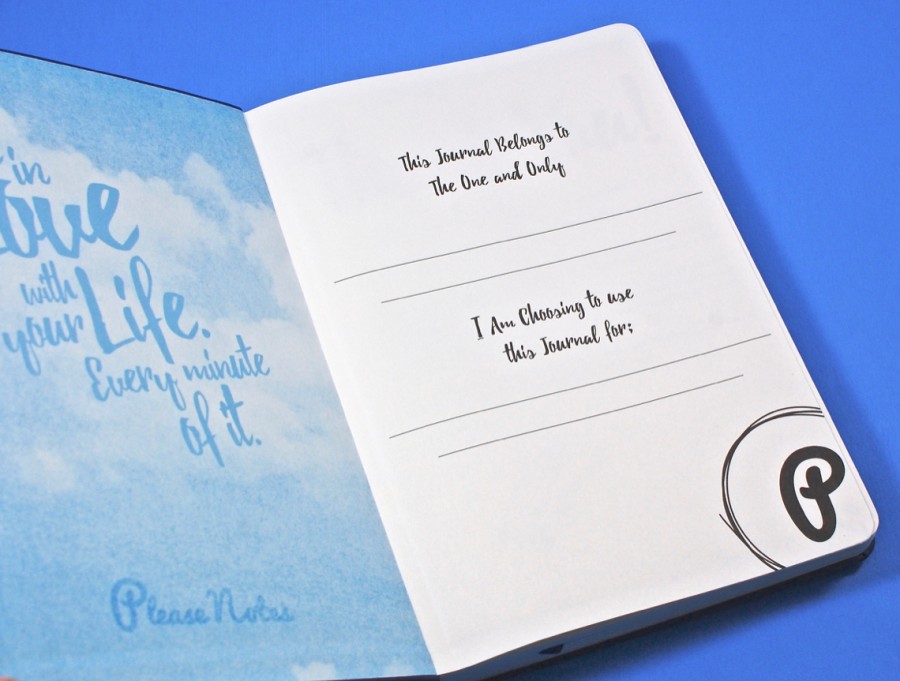 in
Love
with
your Life.
Every minute
of it.
PleaseNotes
This Journal Belongs to
The One and Only
I Am Choosing to use
this Journal for;
P